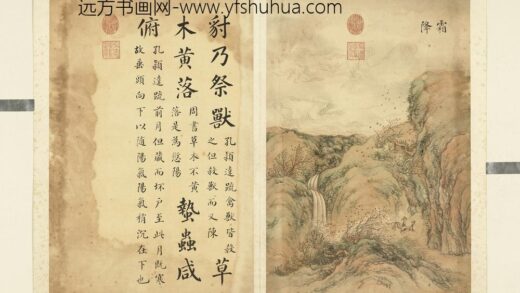 远方书画网-www.yfshuhua.com
霜降
豺乃祭獸
孔穎達疏禽獸皆殺
之但殺獸而又陳
草
木黃落
周書草木不黃
落是為愆陽
蟄蟲咸
俯
孔穎達疏前月但藏而坏戶至此月既寒
故垂頭向下以隨陽氣陽氣稍沉在下也